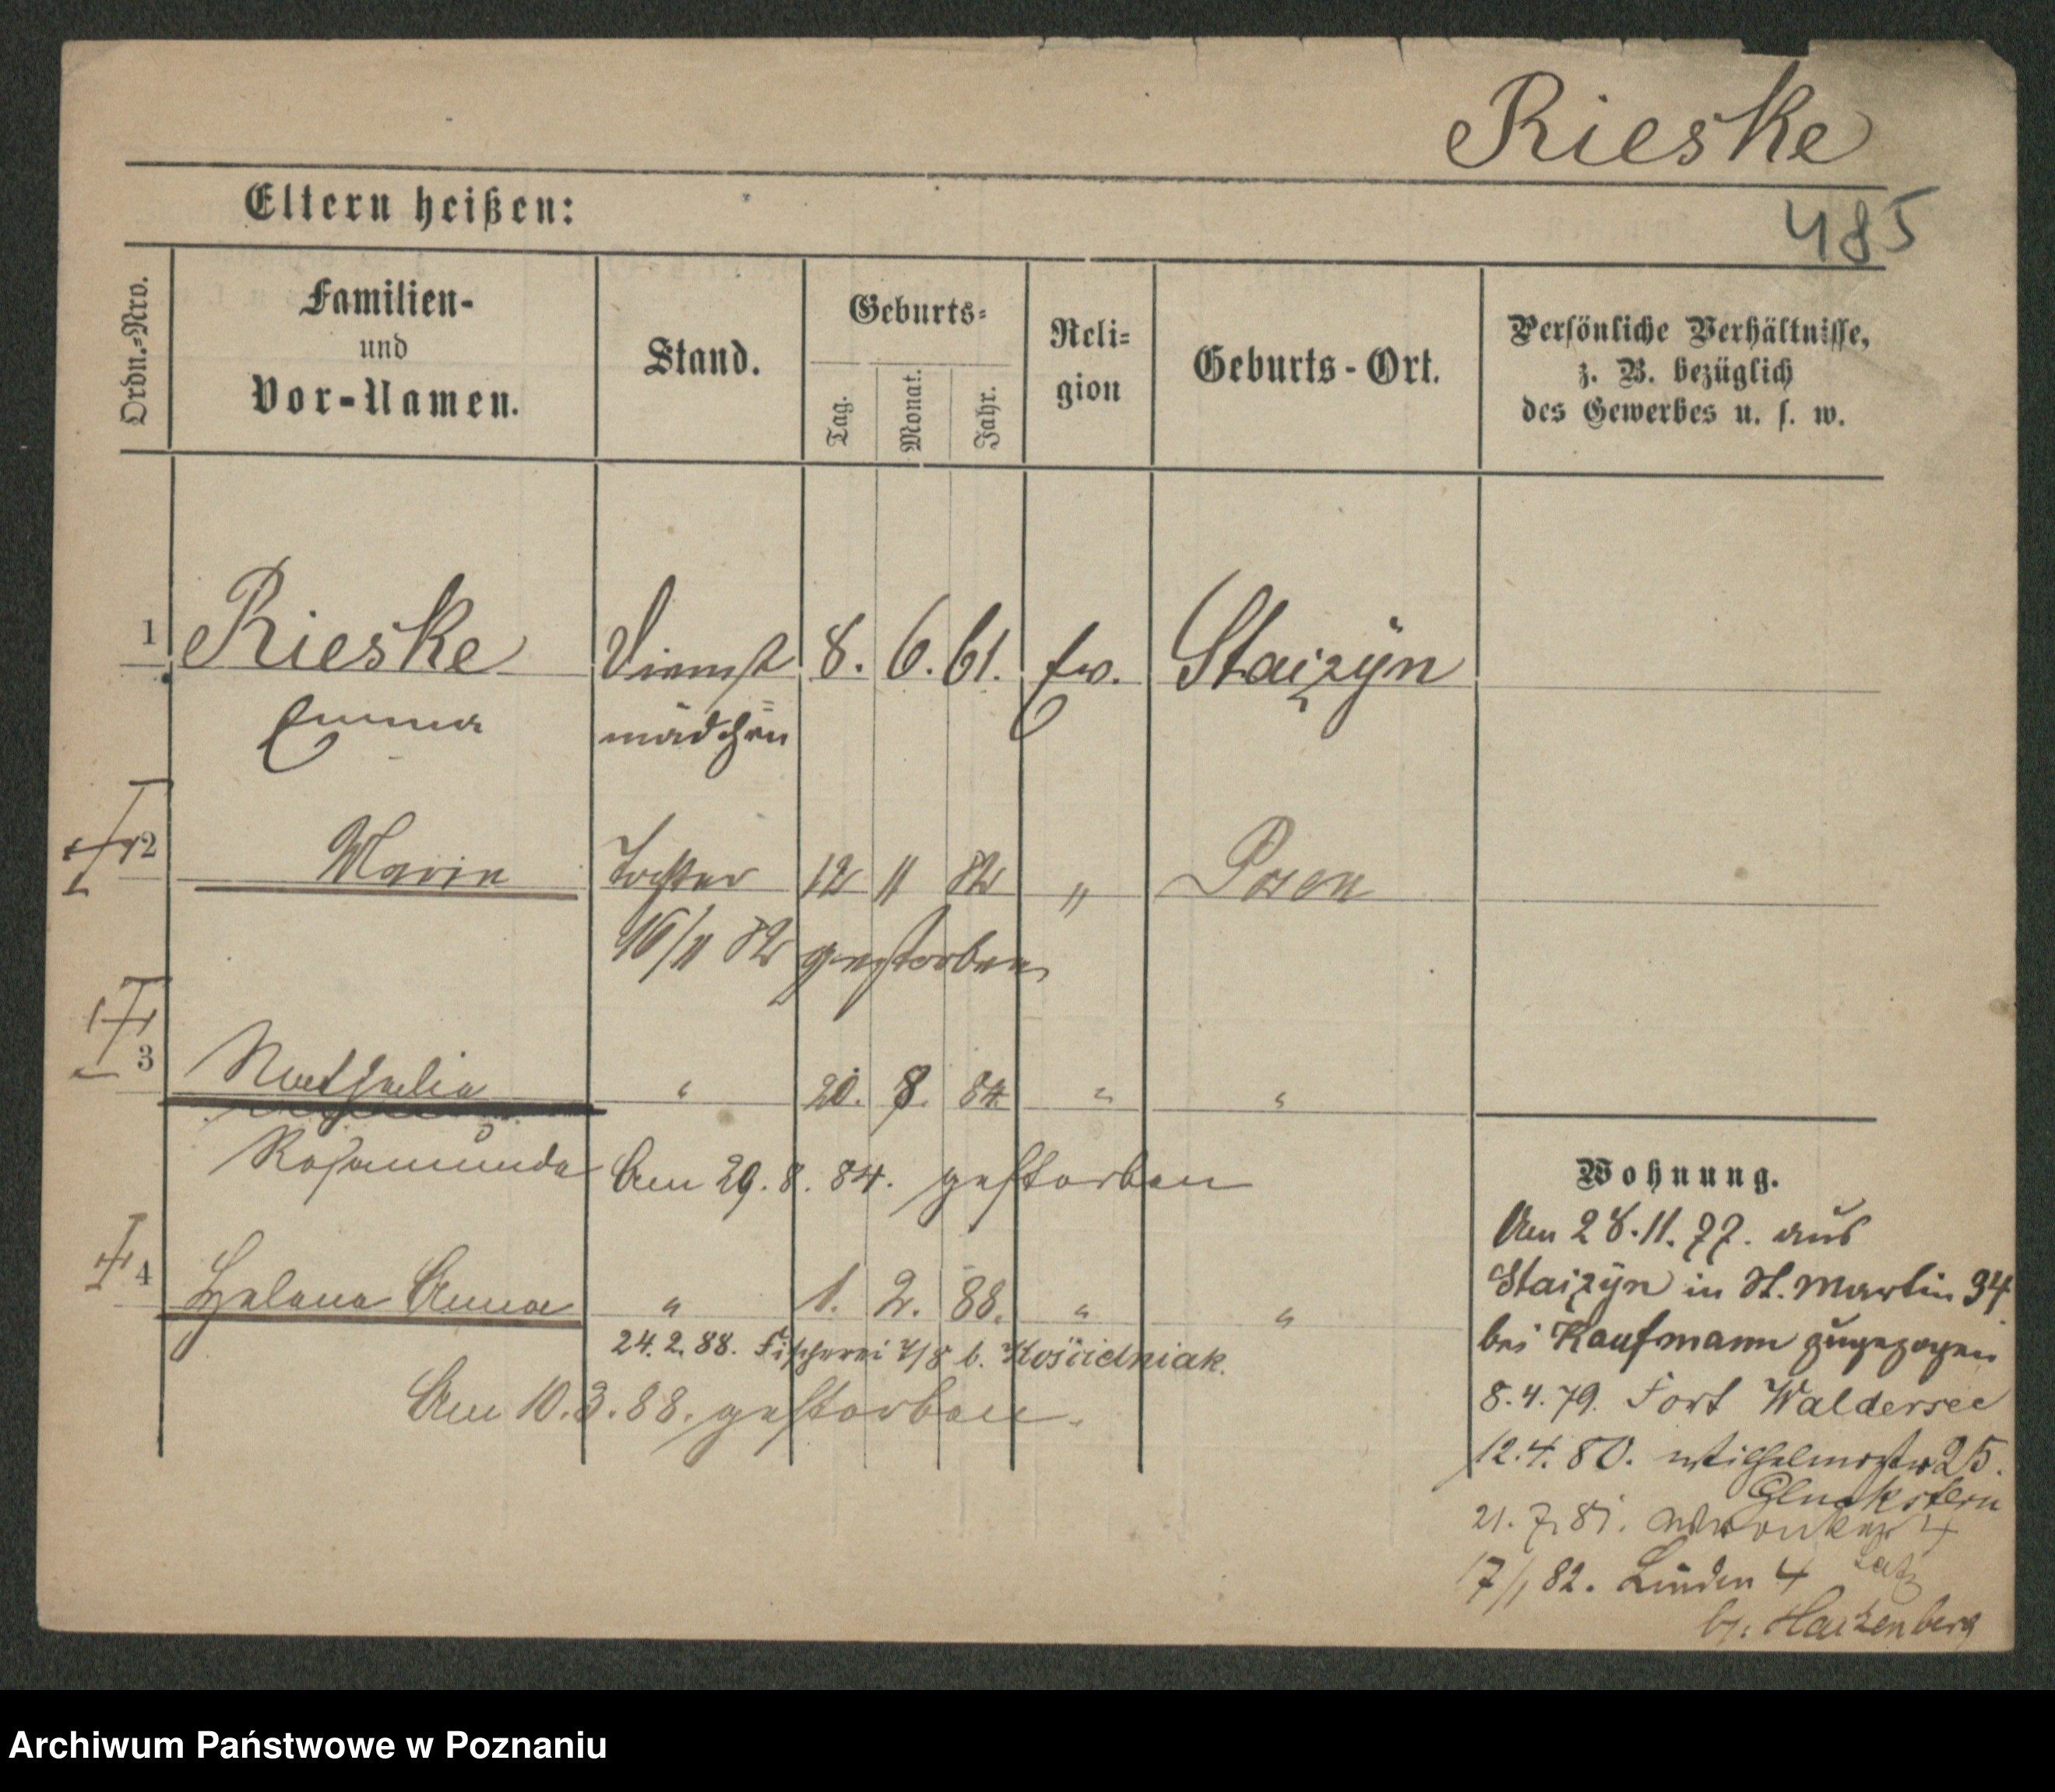 Rieske
485
Eltern heißen:
Ordn.-Nro.
Familien- und Vor-Namen.
Stand.
Geburts-
Tag.
Monat.
Jahr.
Reli-
gion
Geburts-Ort.
Persönliche Verhältnisse,
z. B. bezüglich
des Gewerbes u. s. w.
1 Rieske Dienst 8. 6. 61. ev. Staizyn
Emma mädchen
2 Marie Tochter 12 11 82 " Posen
16/11 82 gestorben
3 Nathalia " 20. 8. 84 " "
Rosamunda Am 29. 8. 84. gestorben
4 Helena Anna " 1. 2. 88. " "
24. 2. 88. Fischerei 7/8 b. Kościelniak.
Am 10. 3. 88. gestorben.
Wohnung.
Am 28. 11. 77. aus
Staizyn in St. Martin 34
bei Kaufmann zugezogen
8. 4. 79. Fort Waldersee
12. 4. 80. Wilhelmstr 25.
Gluckstern
21. 7. 81. Wronker 4
Latz
17/1 82. Linden 4
b. Hackenberg
Archiwum Państwowe w Poznaniu